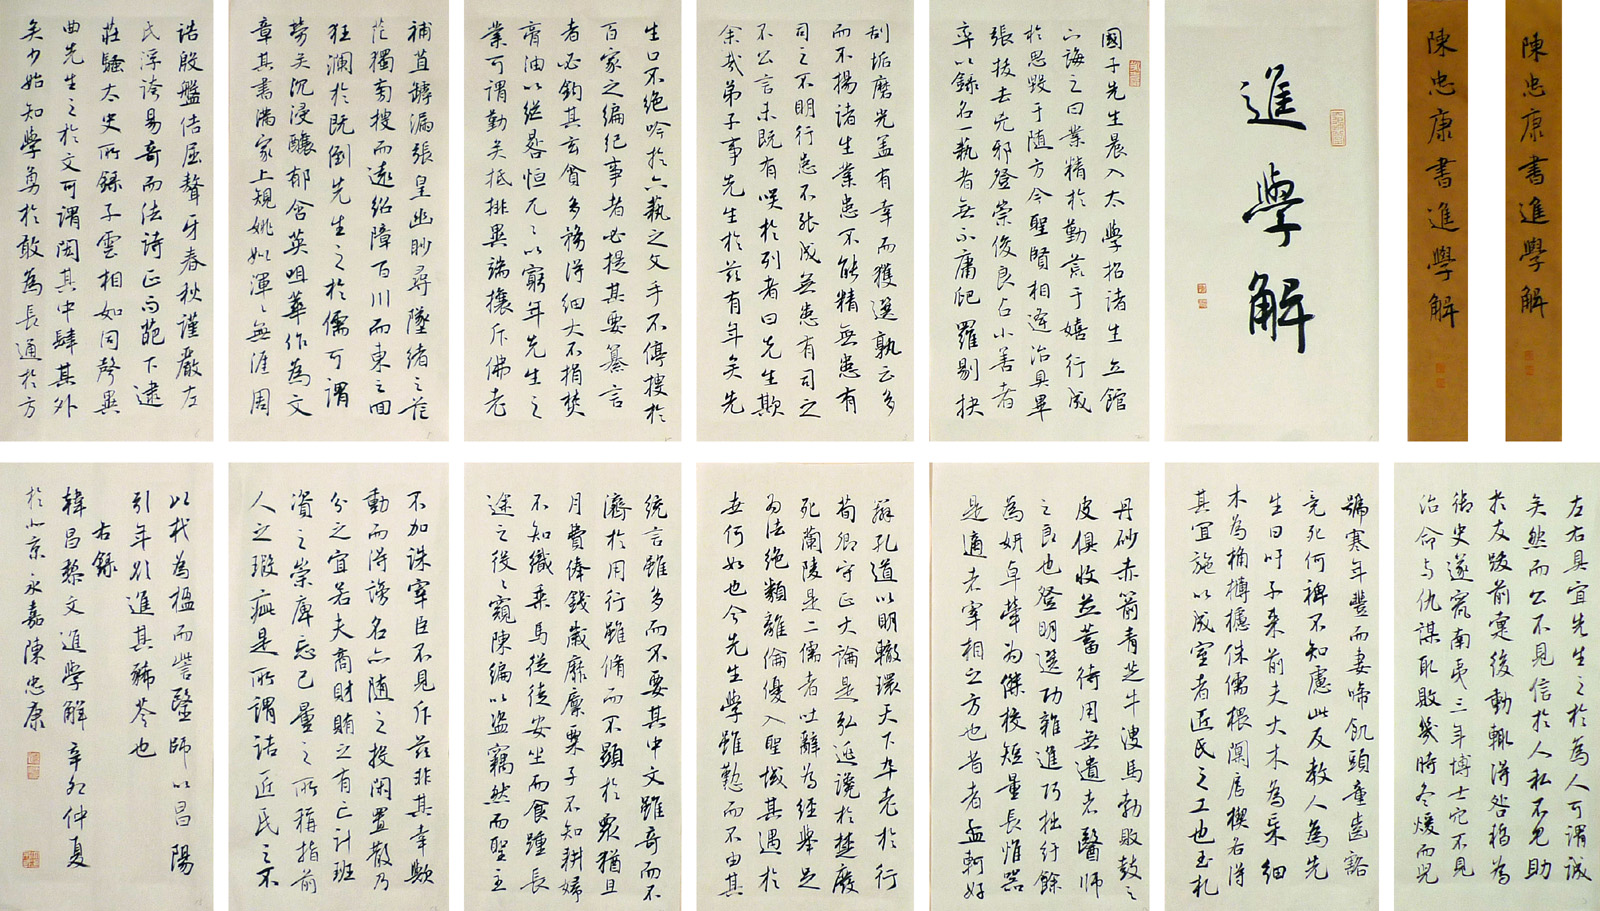 陳忠康書進學解
陳忠康書進學解
進學解
國子先生晨入太學招諸生立館
下誨之曰業精於勤荒于嬉行成
於思毀于隨方今聖賢相逢治具畢
張拔去兇邪登崇俊良占小善者
率以錄名一藝者無不庸爬羅剔抉
刮垢磨光盖有幸而獲選孰云多
而不揚諸生業患不能精無患有
司之不明行患不能成無患有司之
不公言未既有笑於列者曰先生欺
余哉弟子事先生於茲有年矣先
生口不絕吟於六藝之文手不停披於
百家之編紀事者必提其要纂言
者必鈎其玄貪多務得細大不捐焚
膏油以繼晷恒兀〻以窮年先生之
業可謂勤矣抵排異端攘斥佛老
補苴罅漏張皇幽眇尋墜緒之茫
茫獨旁搜而遠紹障百川而東之回
狂瀾於既倒先生之於儒可謂
勞矣沉浸醲郁含英咀華作為文
章其書滿家上規姚姒渾〻無涯周
誥殷盤佶屈聱牙春秋謹嚴左
氏浮誇易奇而法詩正而葩下逮
莊騷太史所錄子雲相如同聲異
曲先生之於文可謂閎其中肆其外
矣少始知學勇於敢為長通於方
左右具宜先生之於為人可謂誠
矣然而公不見信於人私不見助
於友跋前疐後動輒得咎暫為
御史遂竄南夷三年博士冗不見
治命與仇謀取敗幾時冬煖而兒
號寒年豐而妻啼飢頭童齒豁
竟死何裨不知慮此反教人為先
生曰吁子來前夫大木為杗細
木為桷欂櫨侏儒椳闑扂楔各得
其宜施以成室者匠氏之工也玉札
丹砂赤箭青芝牛溲馬勃敗鼓之
皮俱收並蓄待用無遺者醫師
之良也登明選功雜進巧拙紆餘
為妍卓犖為傑校短量長惟器
是適者宰相之方也昔者孟軻好
辯孔道以明轍環天下卒老於行
荀卿守正大論是弘逃讒於楚廢
死蘭陵是二儒者吐辭為經舉足
為法絕類離倫優入聖域其遇於
世何如也今先生學雖勤而不由其
統言雖多而不要其中文雖奇而不
濟於用行雖脩而不顯於眾猶且
月費俸錢歲靡廩粟子不知耕婦
不知織乘馬從徒安坐而食踵長
途之役〻窺陳編以盜竊然而聖主
不加誅宰臣不見斥茲非其幸歟
動而得謗名亦隨之投閑置散乃
分之宜若夫商財賄之有亡計班
資之崇庳忘己量之所稱指前
人之瑕疵是所謂詰匠氏之不
以杙為楹而訾醫師以昌陽
引年欲進其豨苓也
右錄
韓昌黎文進學解辛卯仲夏
於北京永嘉陳忠康